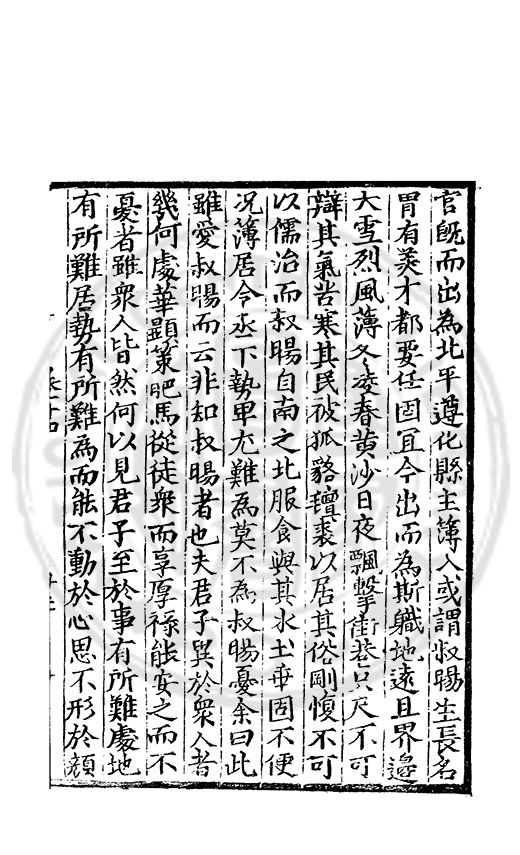 官既而出為北平遵化縣主簿人或謂叔暘生長名
胄有美才都要任固宜今出而為斯職地遠且界邊
大雪烈風薄冬凌春黄沙日夜飄擊街巷只尺不可
辯其氣苦寒其民被狐貉氊裘以居其俗剛愎不可
以儒治而叔暘自南之北服食與其水土乖固不便
况簿居令丞下勢卑尤難為莫不為叔暘憂余曰此
雖愛叔暘而云非知叔暘者也夫君子異於衆人者
幾何處華顯策肥馬從徒衆而享厚祿能安之而不
憂者雖衆人皆然何以見君子至於事有所難處地
有所難居勢有所難為而能不動於心思不形於顔